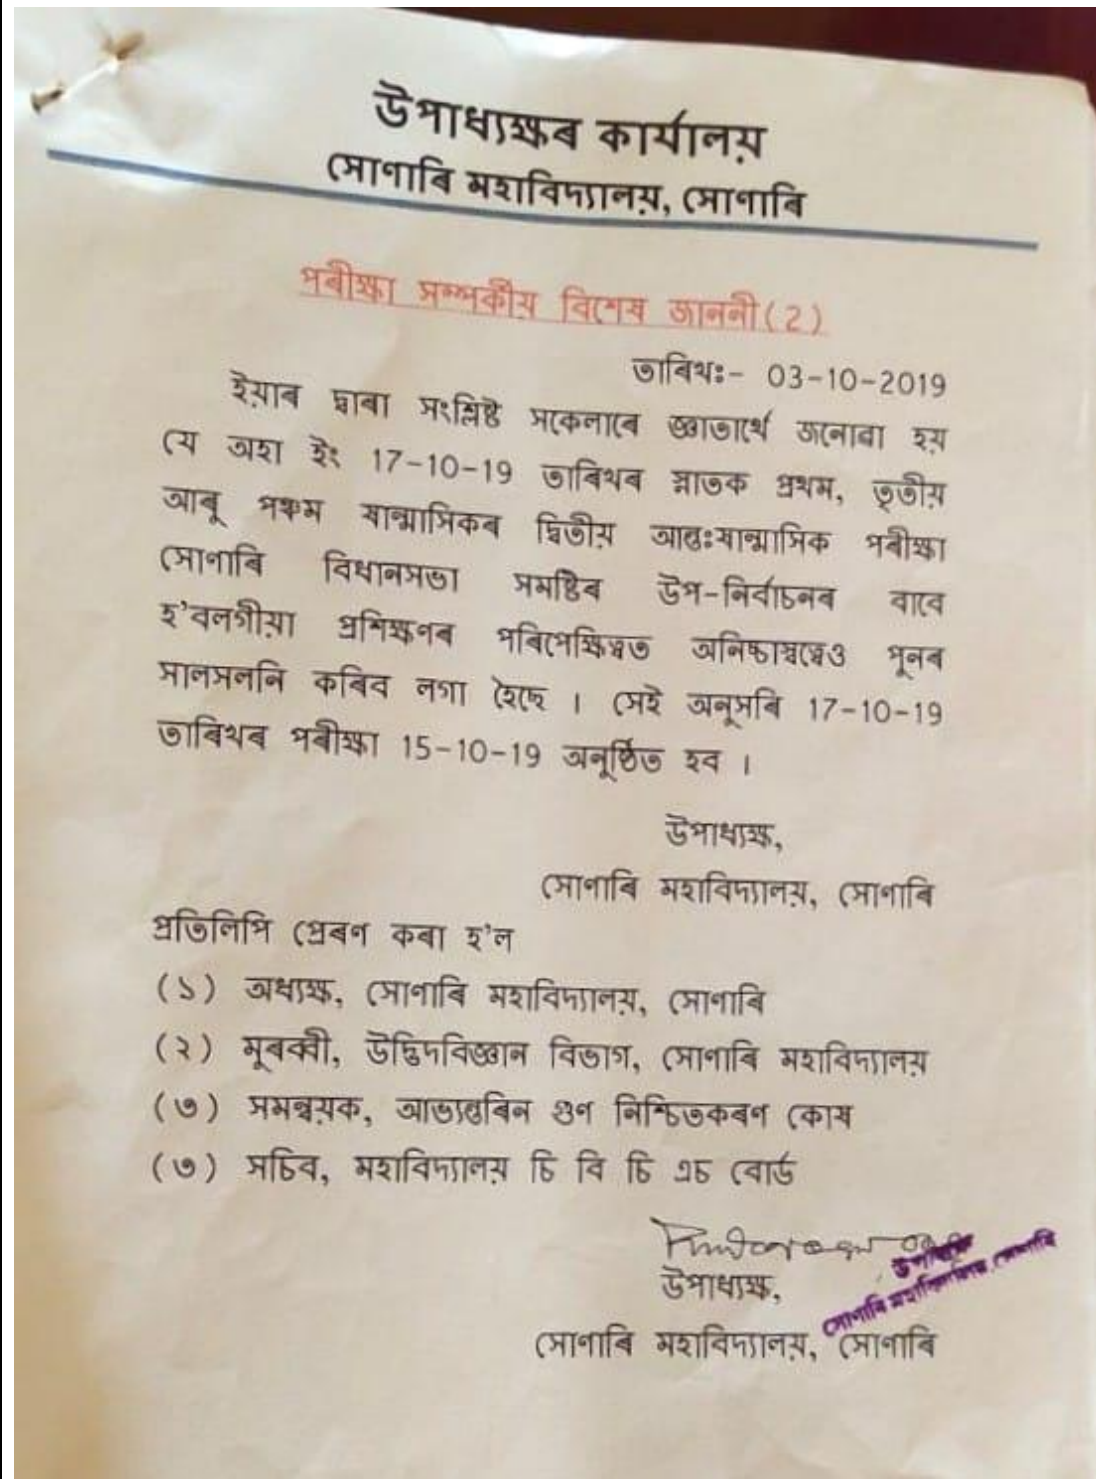 উপাধ্যক্ষৰ কাৰ্যালয়
সোণাৰি মহাবিদ্যালয়, সোণাৰি
পৰীক্ষা সম্পৰ্কীয় বিশেষ জাননী(2)
তাৰিখঃ- 03-10-2019
ইয়াৰ দ্বাৰা সংশ্লিষ্ট সকেলাৰে জ্ঞাতাৰ্থে জনোৱা হয়
যে অহা ইং 17-10-19 তাৰিখৰ স্নাতক প্ৰথম, তৃতীয়
আৰু পঞ্চম ষান্মাসিকৰ দ্বিতীয় আন্তঃষান্মাসিক পৰীক্ষা
সোণাৰি বিধানসভা সমষ্টিৰ উপ-নিৰ্বাচনৰ বাবে
হ'বলগীয়া প্ৰশিক্ষণৰ পৰিপেক্ষিত্বত অনিচ্ছাস্বত্বেও পূনৰ
সালসলনি কৰিব লগা হৈছে । সেই অনুসৰি 17-10-19
তাৰিখৰ পৰীক্ষা 15-10-19 অনুষ্ঠিত হব ।
উপাধ্যক্ষ,
সোণাৰি মহাবিদ্যালয়, সোণাৰি
প্ৰতিলিপি প্ৰেৰণ কৰা হ'ল
(১) অধ্যক্ষ, সোণাৰি মহাবিদ্যালয়, সোণাৰি
(২) মূৰব্বী, উদ্ভিদবিজ্ঞান বিভাগ, সোণাৰি মহাবিদ্যালয়
(৩) সমন্বয়ক, আভ্যন্তৰিন গুণ নিশ্চিতকৰণ কোষ
(৩) সচিব, মহাবিদ্যালয় চি বি চি এচ বোৰ্ড
উপাধ্যক্ষ
সোণাৰি মহাবিদ্যালয়, সোণাৰি
উপাধ্যক্ষ,
সোণাৰি মহাবিদ্যালয়, সোণাৰি